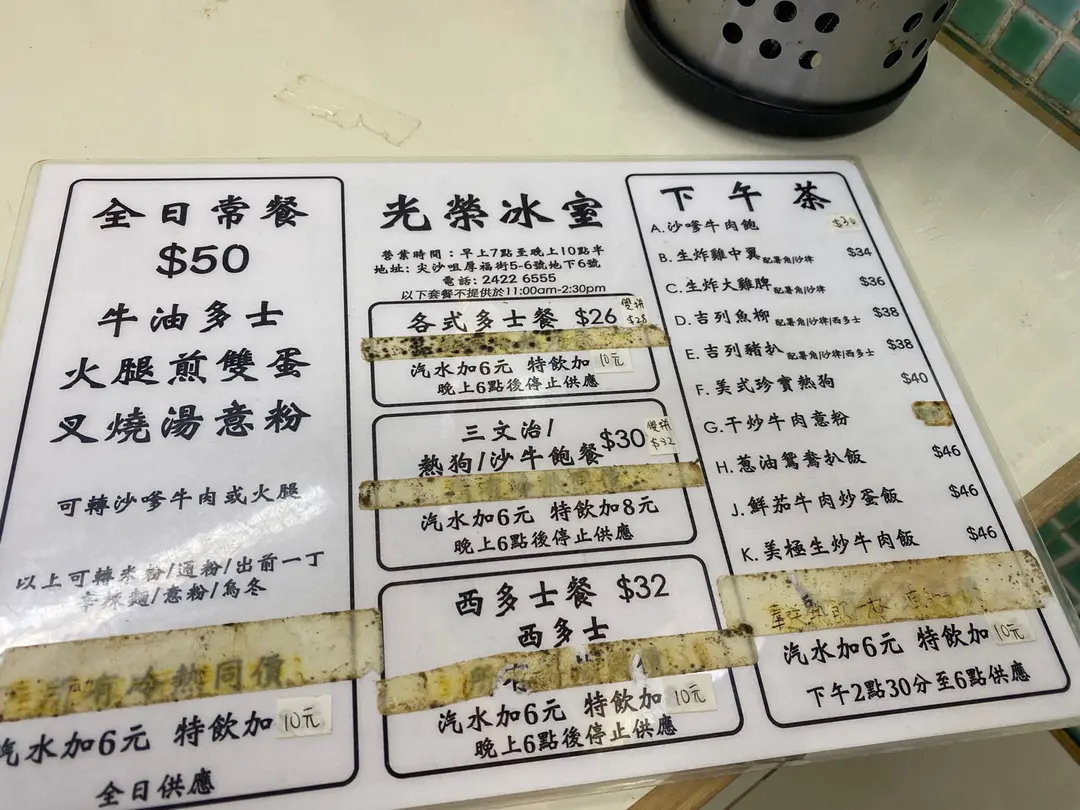 全日常餐
$50
牛油多士
火腿煎雙蛋
叉燒湯意粉
可轉沙嗲牛肉或火腿
以上可轉米粉/通粉/出前一丁
辛辣麵/意粉/烏冬
所有冷熱同價
汽水加6元 特飲加10元
全日供應
光榮冰室
營業時間：早上7點至晚上10點半
地址: 尖沙咀厚福街5-6號地下6號
電話: 2422 6555
以下套餐不提供於11:00am-2:30pm
各式多士餐 $26 雙拼 $28
汽水加6元 特飲加10元
晚上6點後停止供應
三文治/
熱狗/沙牛飽餐 $30 雙拼 $32
汽水加6元 特飲加8元
晚上6點後停止供應
西多士餐 $32
西多士
所有
汽水加6元 特飲加10元
晚上6點後停止供應
下午茶
A.沙嗲牛肉飽 $30
B.生炸雞中翼配薯角/沙律 $34
C.生炸大雞脾配薯角/沙律 $36
D.吉列魚柳 配薯角/沙律/西多士 $38
E.吉列豬扒 配薯角/沙律/西多士 $38
F.美式珍寶熱狗 $40
G.干炒牛肉意粉
H.蔥油鴛鴦扒飯 $46
J.鮮茄牛肉炒蛋飯 $46
K.美極生炒牛肉飯 $46
汽水加6元 特飲加10元
下午2點30分至6點供應